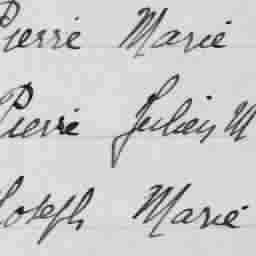 Pierre Marie
Pierre Julien M
Joseph Marie